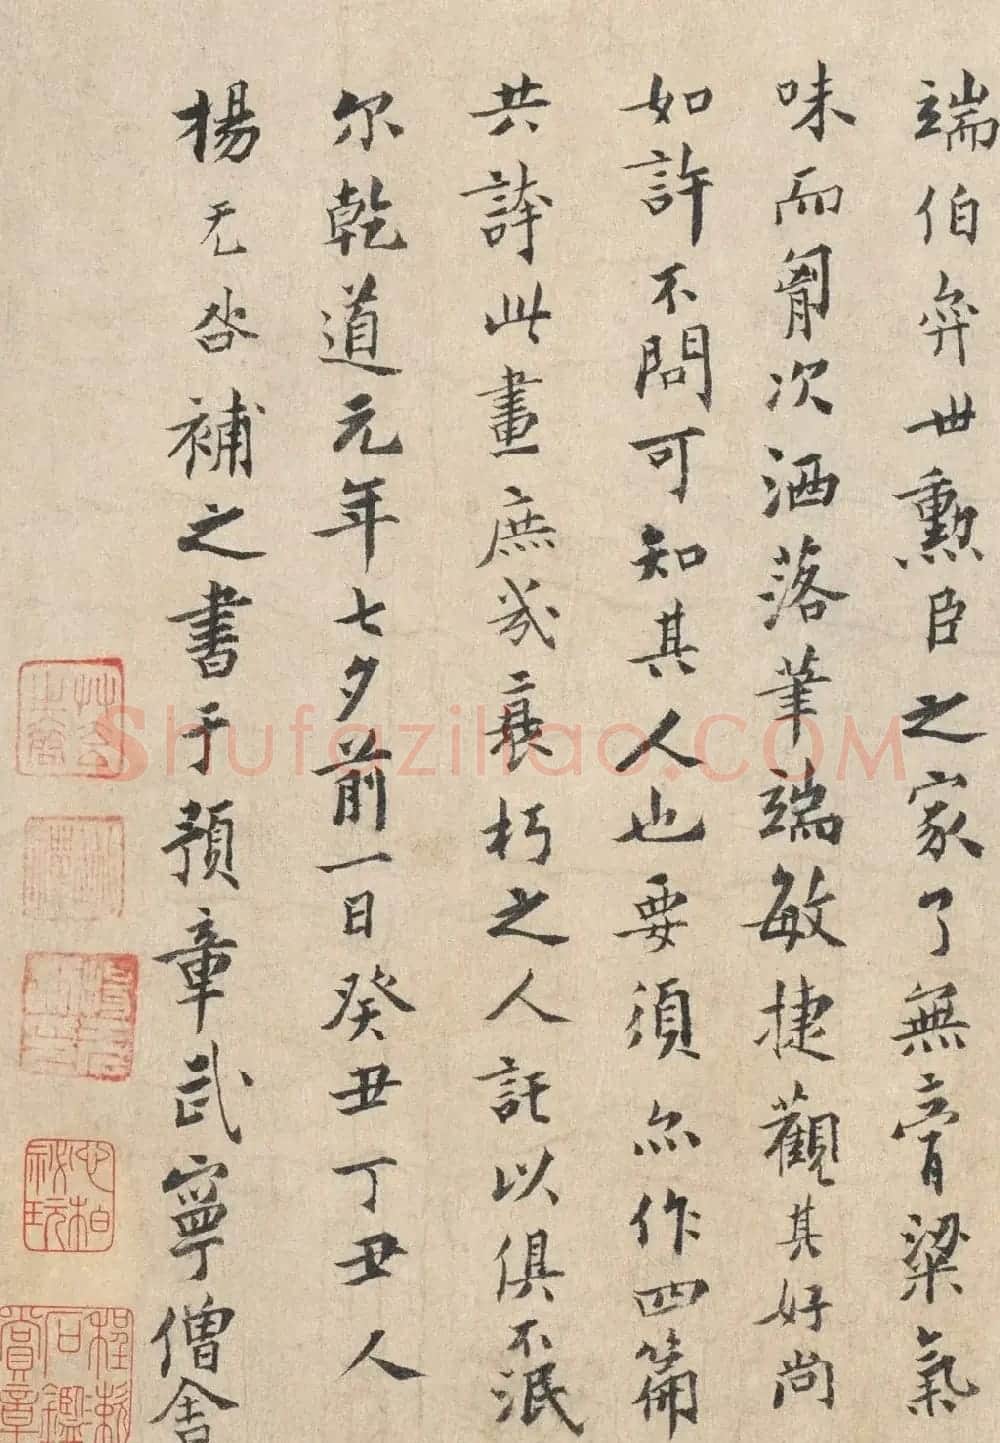 端伯奕世勲臣之家了無膏粱氣
味而胷次洒落筆端敏捷觀其好尚
如許不問可知其人也要須亦作四篇
共誇此畫庶幾衰朽之人託以俱不泯
尔乾道元年七夕前一日癸丑丁丑人
楊无咎補之書于預章武寧僧舍
Shufazihao.COM
程棨
石鑑
賞章